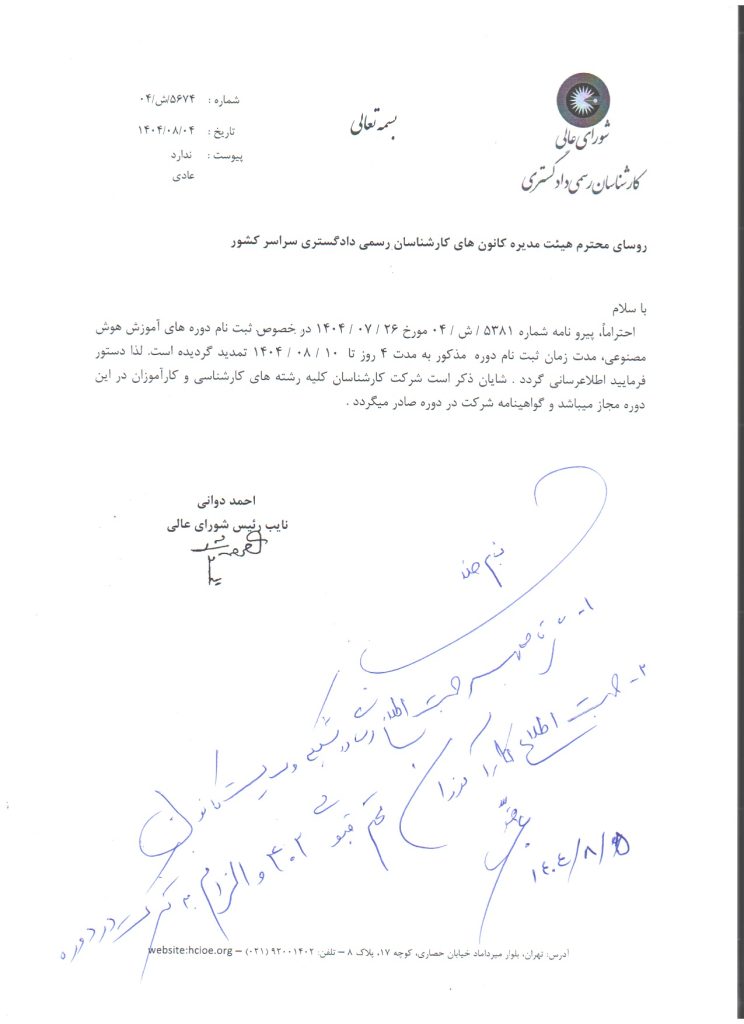 شماره : ۵۶۷۴/ش/۰۴
تاریخ : ۱۴۰۴/۰۸/۰۴
پیوست : ندارد
عادی
بسمه تعالی
شورای عالی
کارشناسان رسمی دادگستری
روسای محترم هیئت مدیره کانون های کارشناسان رسمی دادگستری سراسر کشور
با سلام
احتراماً، پیرو نامه شماره ۵۳۸۱ / ش / ۰۴ مورخ ۲۶ / ۰۷ / ۱۴۰۴ در خصوص ثبت نام دوره های آموزش هوش
مصنوعی، مدت زمان ثبت نام دوره مذکور به مدت ۴ روز تا ۱۰ / ۰۸ / ۱۴۰۴ تمدید گردیده است. لذا دستور
فرمایید اطلاعرسانی گردد . شایان ذکر است شرکت کارشناسان کلیه رشته های کارشناسی و کارآموزان در این
دوره مجاز میباشد و گواهینامه شرکت در دوره صادر میگردد .
احمد دوانی
نایب رئیس شورای عالی
۱-
جهت اطلاع
۲- جهت اطلاع
و الزام به شرکت در دوره
۱۴۰۴/۸/۵
آدرس: تهران، بلوار میرداماد خیابان حصاری، کوچه ۱۷، پلاک ۸ – تلفن: ۹۲۰۰۱۴۰۲ (۰۲۱) – website:hcioe.org